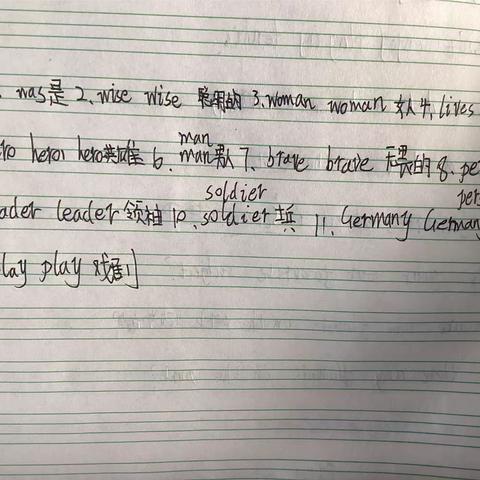 was是 2、wise wise 聪明的 3、woman woman 女人 4、lives
hero hero英雄 6、man 男人 7、brave brave 无畏的 8、pe
man
soldier
per
ader leader 领袖 10、soldier 士兵 11、Germany German
lay play 戏剧